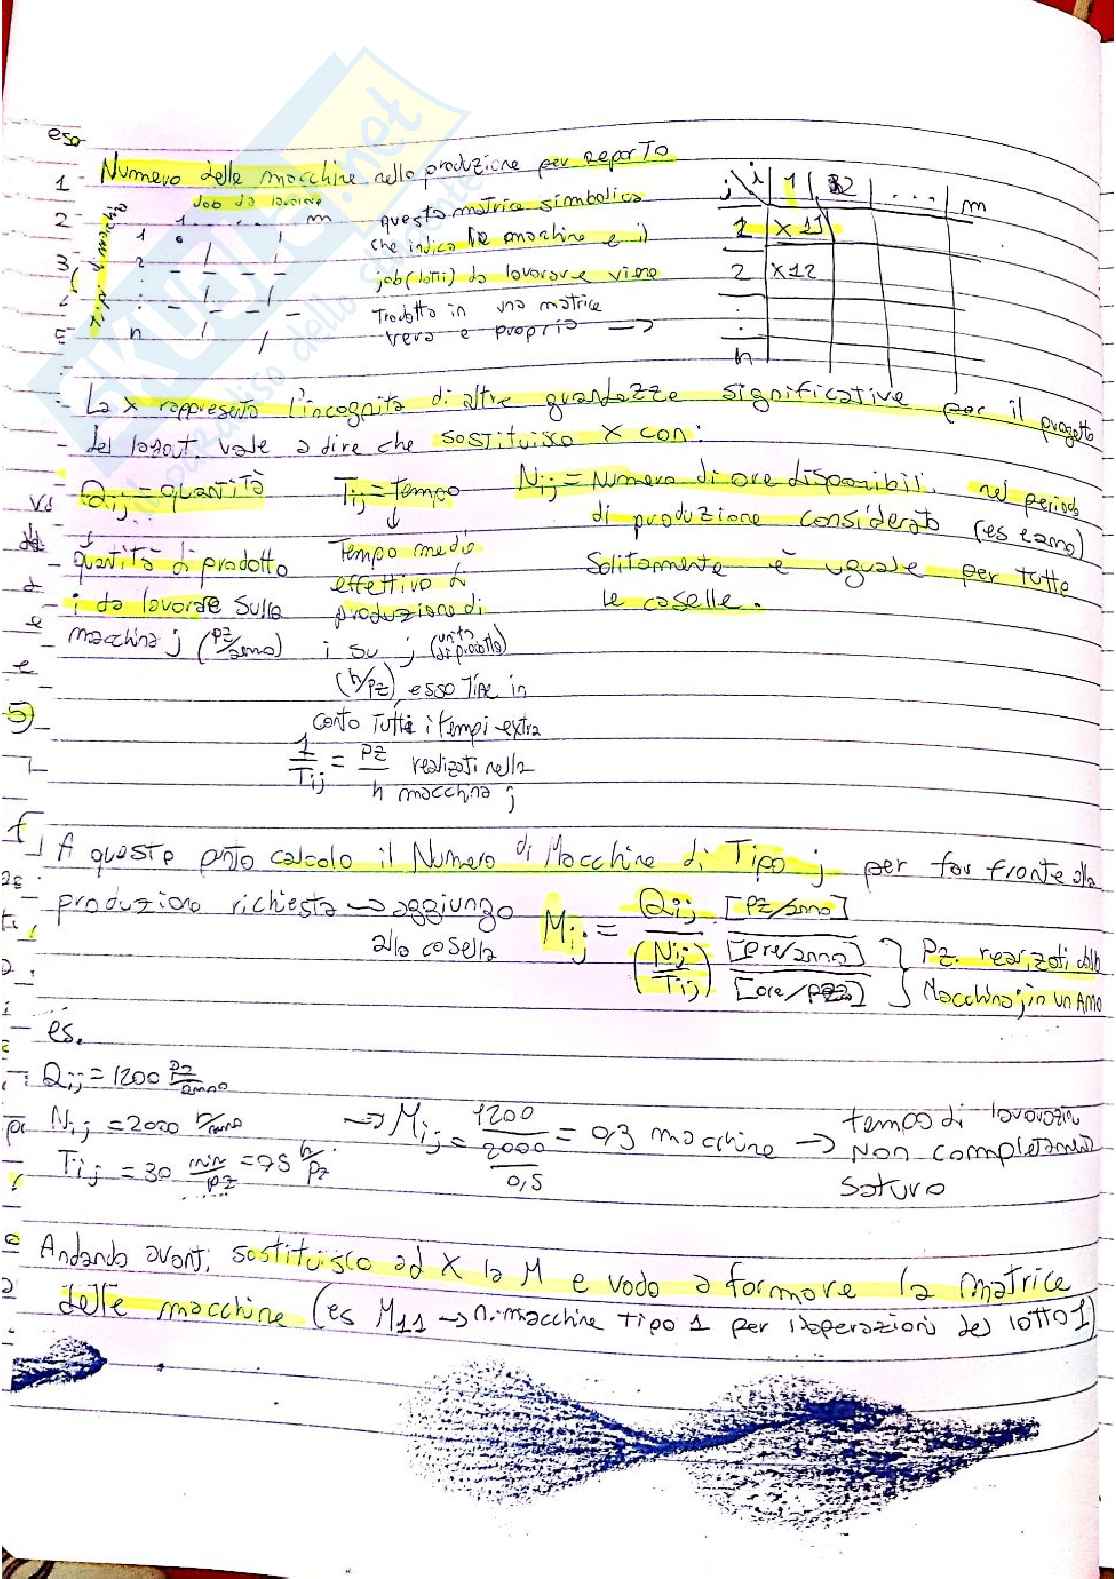 Numero delle macchine nella produzione per reparto
Job da lavorare
1 ...... m
Tipi di macchia
1
2
n
Questa matrice simbolica
che indica le macchine e il
job (lotti) da lavorare viene
tradotta in una matrice
vera e propria →
j \ i 1 2 ... m
1 X11
2 X12
n
La X rappresenta l'incognita di altre grandezze significative per il progetto
del layout. vale a dire che sostituisco X con:
Qij = quantità
↓
quantità di prodotto
i da lavorare sulla
macchina j (pz/anno)
Tij = Tempo
↓
Tempo medio
effettivo di
produzione di
i su j (unità di prodotto)
(h/pz) esso tiene in
conto tutti i tempi extra
1/Tij = pz/h realizzati nella
macchina j
Nij = Numero di ore disponibili nel periodo
di produzione considerato (es 1 anno)
Solitamente è uguale per tutte
le caselle.
A questo punto calcolo il Numero di Macchine di Tipo j per far fronte alla
produzione richiesta → aggiungo
alla casella
Mij = Qij / (Nij / Tij) [pz/anno] / [ore/anno] / [ore/pz] } Pz. realizzati dalla
Macchina j in un Anno
es.
Qij = 1200 pz/anno
Nij = 2000 h/anno
Tij = 30 min/pz = 0,5 h/pz
→ Mij = 1200 / (2000 / 0,5) = 0,3 macchine → tempo di lavorazione
Non completamente
saturo
Andando avanti, sostituisco ad X la M e vado a formare la matrice
delle macchine (es M11 → n. macchine tipo 1 per l'operazioni del lotto 1)